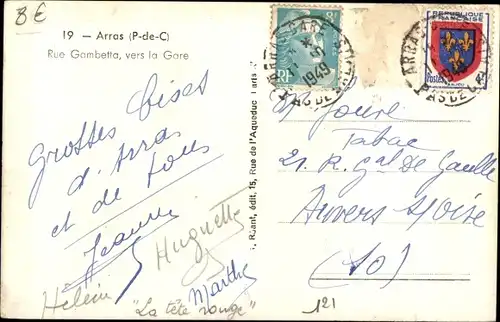 BE
19 — Arras (P-de-C)
Rue Gambetta, vers la Gare
Grosses bises
d'Arras
et de tous
Jeanne
Huguette
Marthe
Hélène
"La tête rouge"
édit, 15, Rue de l'Aqueduc
RF
ARRAS GARE
1949
PAS DE CALAIS
REPUBLIQUE
FRANÇAISE
Postes
ARRAS
1949
PAS DE CALAIS
Jouve
Tabac
21. R. Gal de Gaulle
Auvers s/Oise
(So)
121